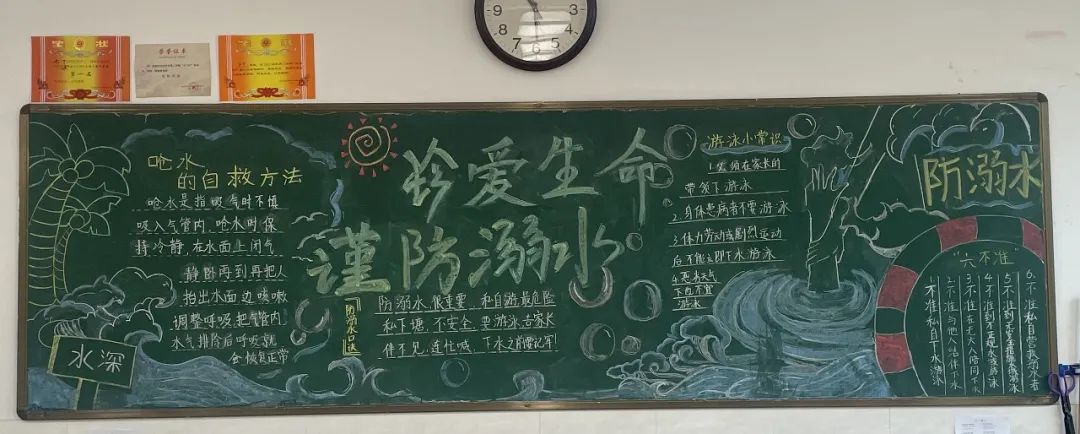 第一名
荣誉证书
11
9
8
7
6
5
4
3
珍爱生命
谨防溺水
呛水
的自救方法
呛水是指吸气时不慎
吸入气管内,呛水时保
持冷静,在水面上闭气
静卧再到再把人
抬出水面边咳嗽
调整呼吸,把气管内
水气排除后呼吸就
会恢复正常
水深
防溺水口诀
防溺水,很重要,私自游最危险
私下塘,不安全,要游泳,告家长
伴不见,连忙喊,下水之前要记牢
游泳小常识
1.必须在家长的
带领下游泳
2.身体患病者不要游泳
3.体力劳动或剧烈运动
后不能立即下水游泳
4.恶劣天气
下也不宜
游泳
防溺水
"六不准"
1.不准私自下水游泳
2.不准与他人结伴下水
3.不准在无大人陪同下水
4.不准到不熟悉水域游泳
5.不准到无安全措施处游泳
6.不准私自营救溺水者